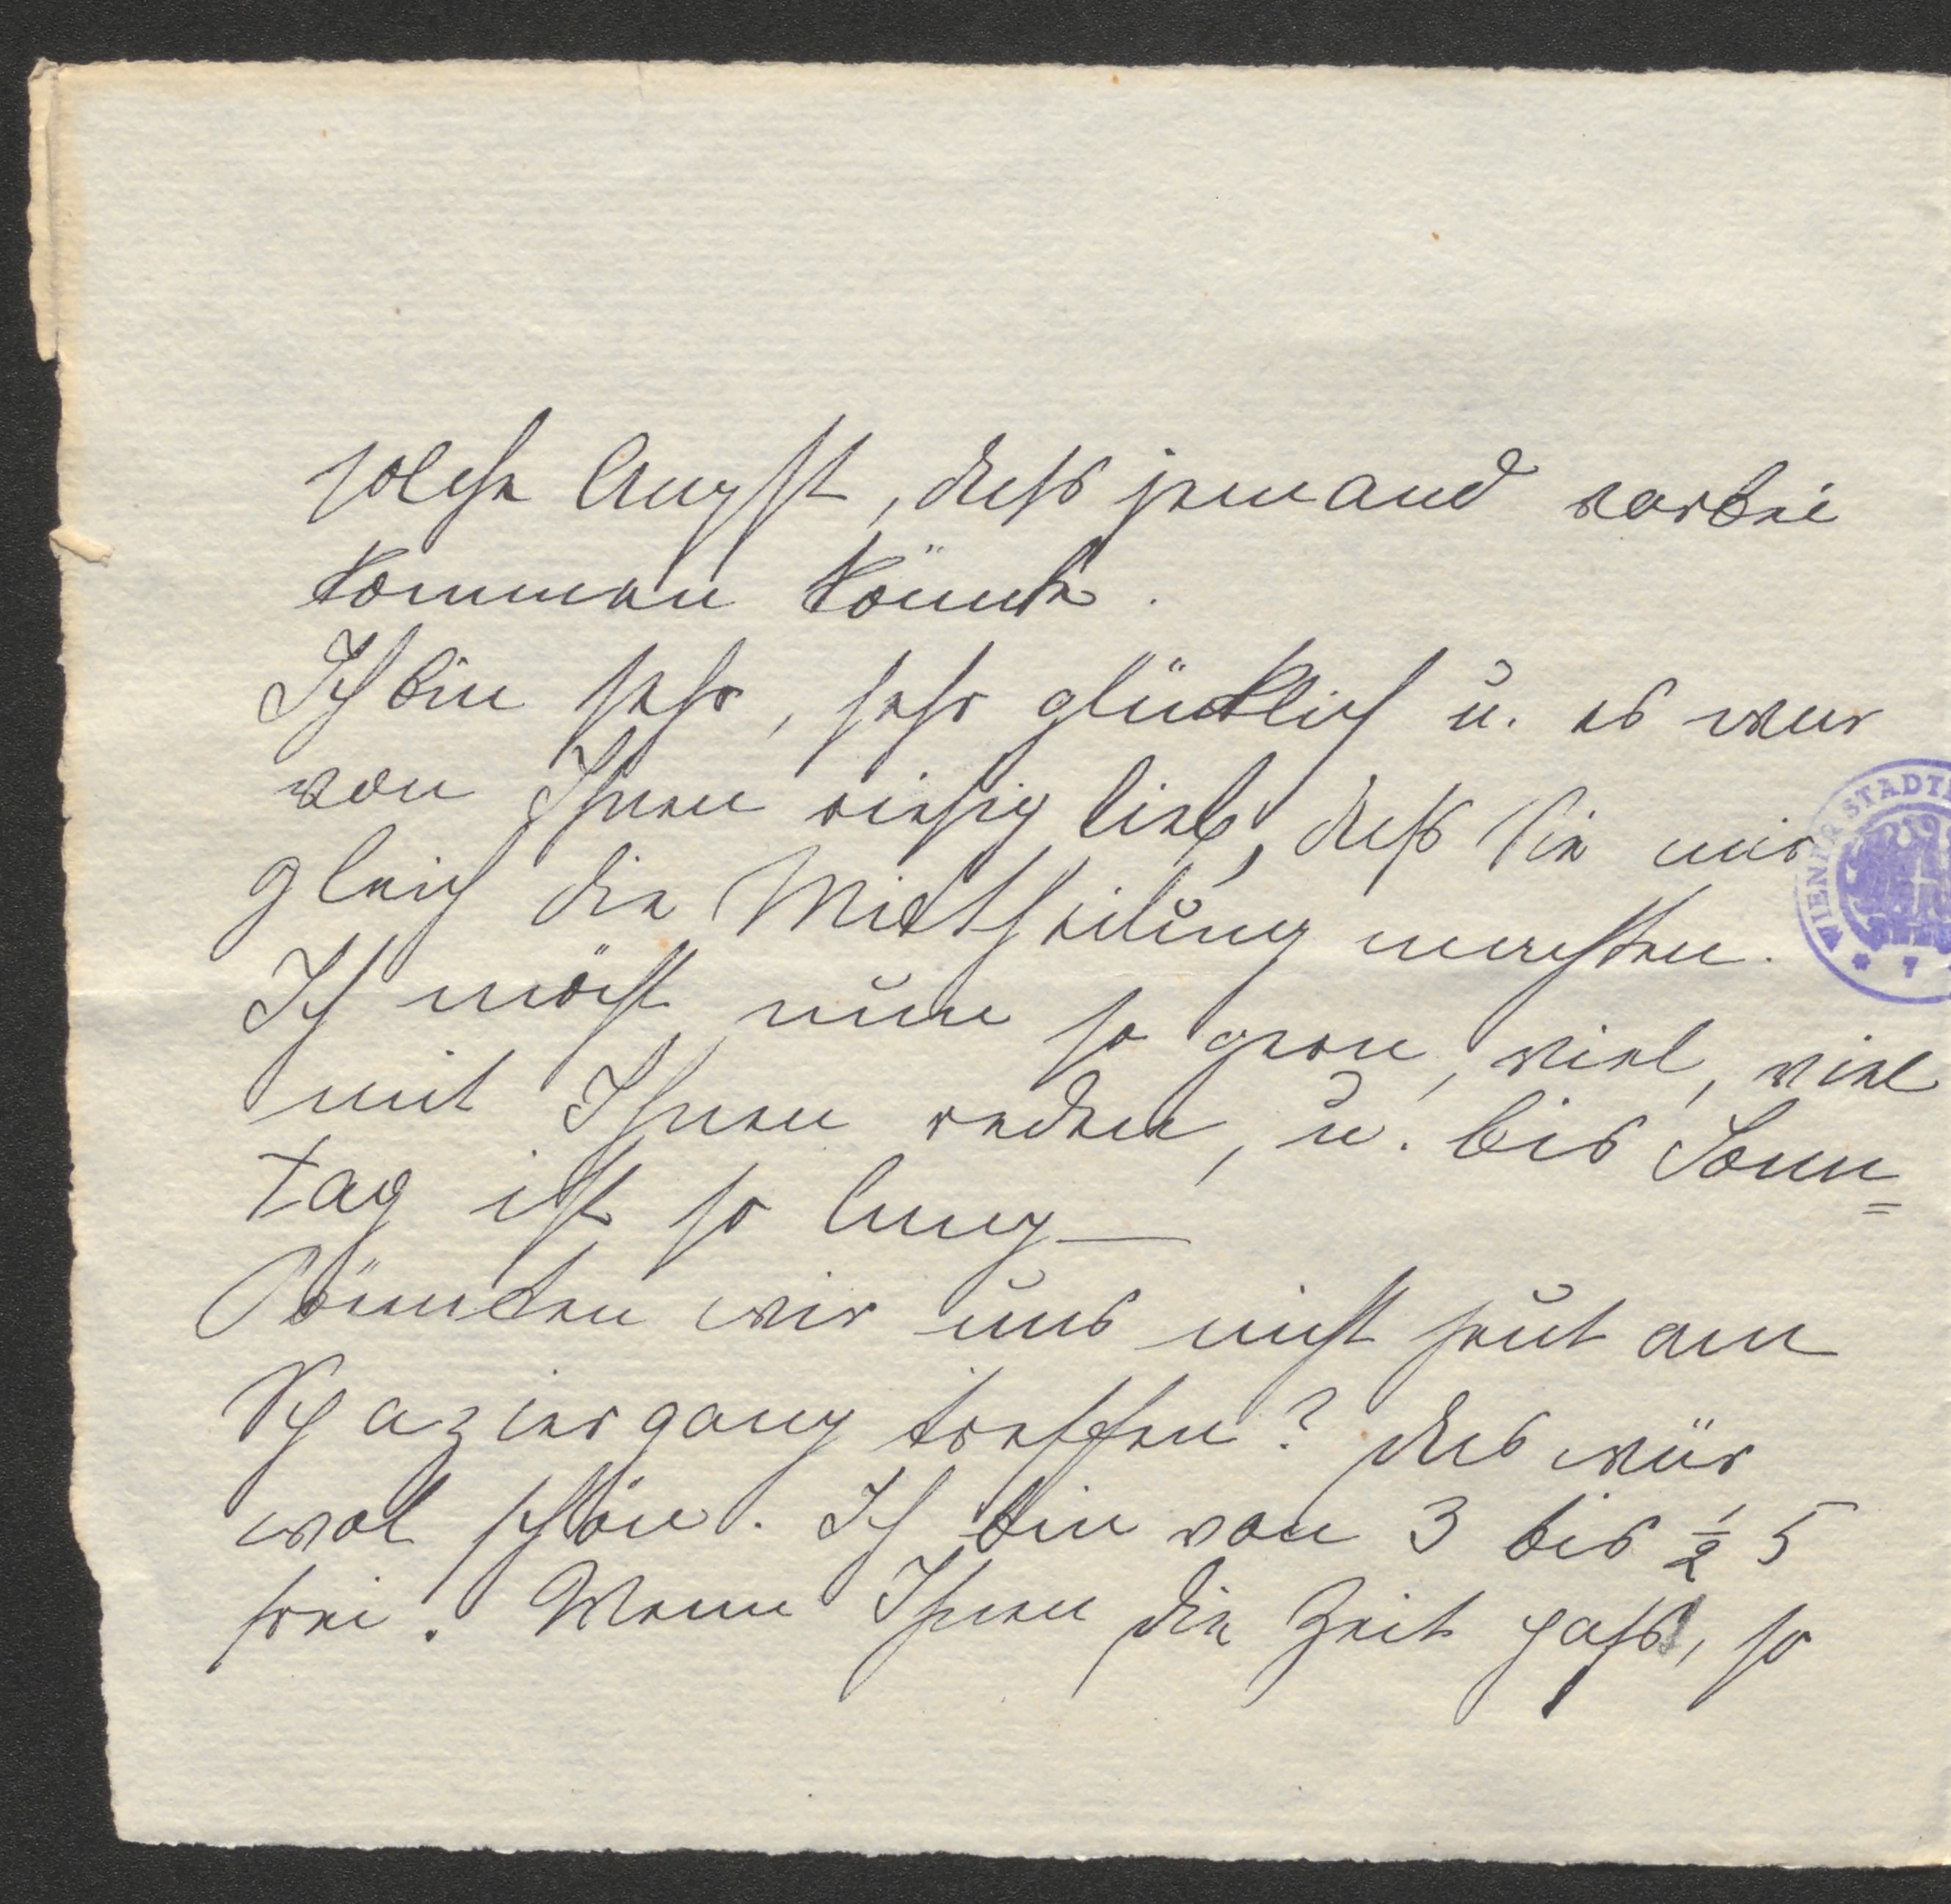 solche Angst, daß jemand vorbei
kommen könnte.
Ich bin sehr, sehr glücklich u. es war
von Ihnen riesig lieb, daß Sie mir
gleich die Mittheilung machten.
Ich möcht nun so gern, viel, viel
mit Ihnen reden, u. bis Sonn=
tag ist so lang —
Könnten wir uns nicht heut am
Spaziergang treffen? das wär
wol schön. Ich bin von 3 bis ½ 5
frei. Wenn Ihnen die Zeit paßt, so
WIENER STADT
* 7